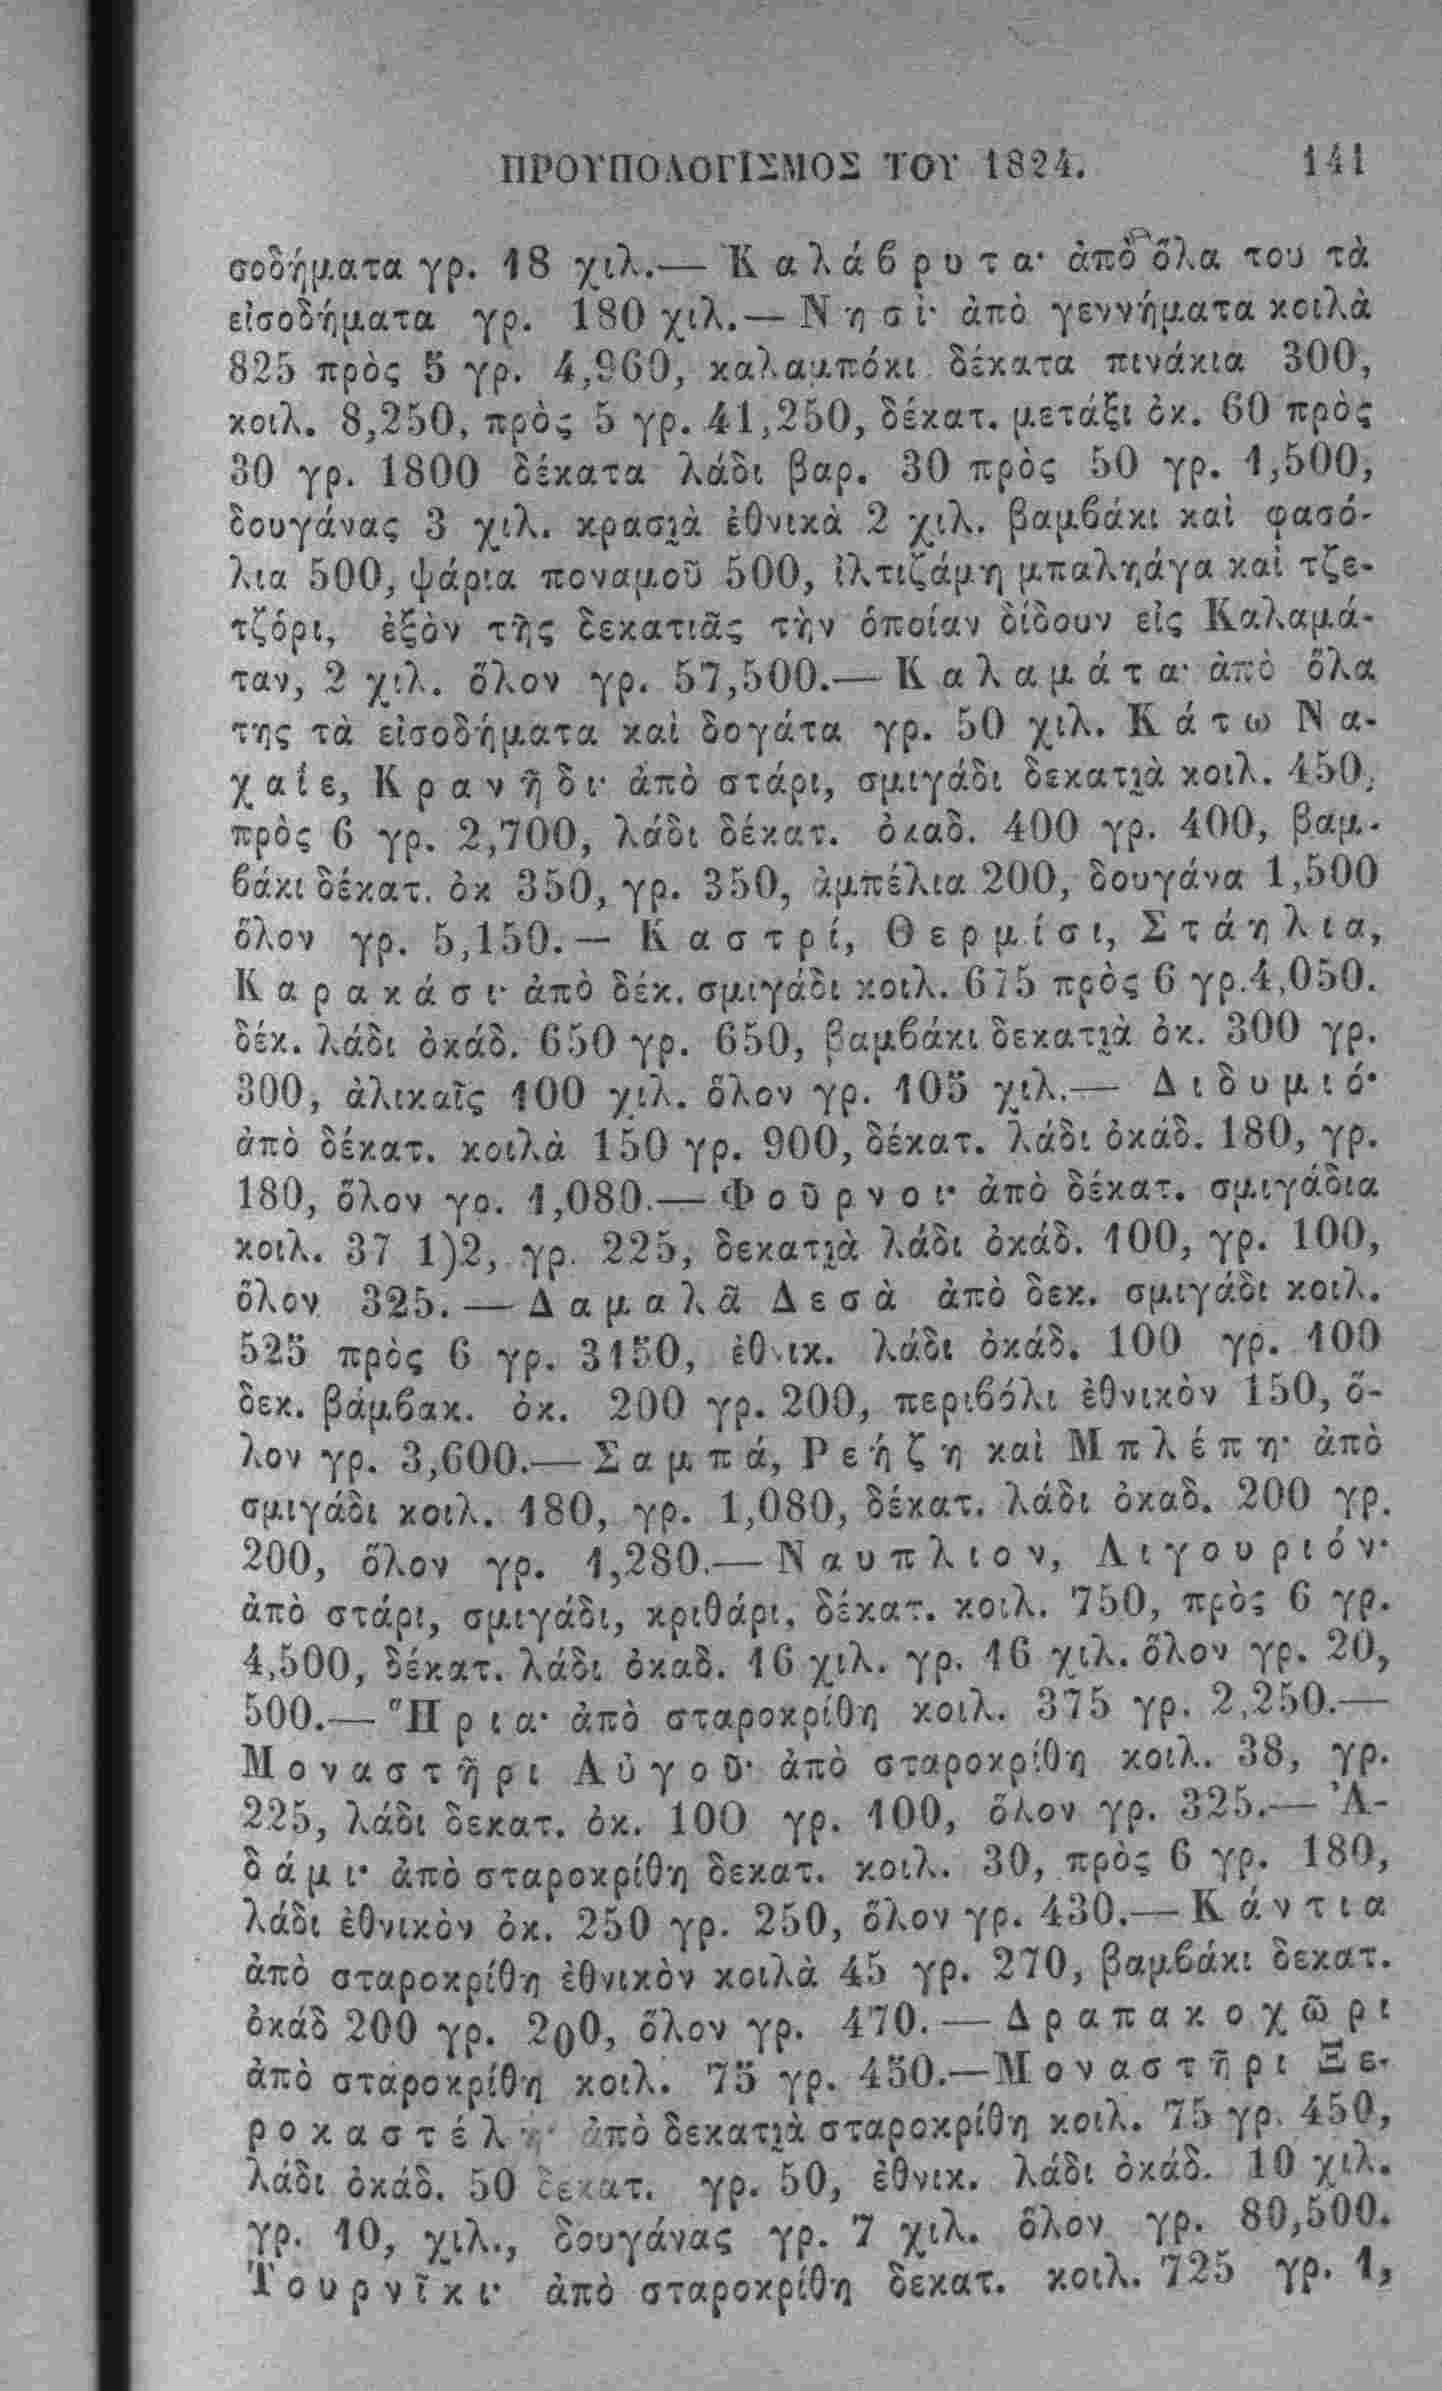 ΠΡΟΥΠΟΛΟΓΙΣΜΟΣ ΤΟΥ 1824. 141
σοδήματα γρ. 18 χιλ.— Καλάβρυτα· ἀπὸ ὅλα του τὰ
εἰσοδήματα γρ. 180 χιλ.— Νησί· ἀπὸ γεννήματα κοιλὰ
825 πρὸς 5 γρ. 4,960, καλαμπόκι δέκατα πινάκια 300,
κοιλ. 8,250, πρὸς 5 γρ. 41,250, δέκατ. μετάξι ὀκ. 60 πρὸς
30 γρ. 1800 δέκατα λάδι βαρ. 30 πρὸς 50 γρ. 1,500,
δουγάνας 3 χιλ. κρασιὰ ἐθνικὰ 2 χιλ. βαμβάκι καὶ φασό-
λια 500, ψάρια ποναμοῦ 500, ἰλτιζάμη μπαληάγα καὶ τζε-
τζόρι, ἐξὸν τῆς δεκατιᾶς τὴν ὁποίαν δίδουν εἰς Καλαμά-
ταν, 2 χιλ. ὅλον γρ. 57,500.— Καλαμάτα· ἀπὸ ὅλα
της τὰ εἰσοδήματα καὶ δογάτα γρ. 50 χιλ. Κάτω Να-
χαῖε, Κρανῆδι· ἀπὸ στάρι, σμιγάδι δεκατιὰ κοιλ. 450,
πρὸς 6 γρ. 2,700, λάδι δέκατ. ὀκαδ. 400 γρ. 400, βαμ-
βάκι δέκατ. ὀκ 350, γρ. 350, ἀμπέλια 200, δουγάνα 1,500
ὅλον γρ. 5,150.— Καστρί, Θερμίσι, Στάηλια,
Καρακάσι· ἀπὸ δέκ. σμιγάδι κοιλ. 675 πρὸς 6 γρ.4,050.
δέκ. λάδι ὀκάδ. 650 γρ. 650, βαμβάκι δεκατιὰ ὀκ. 300 γρ.
300, ἁλικαῖς 100 χιλ. ὅλον γρ. 105 χιλ.— Διδυμιό·
ἀπὸ δέκατ. κοιλὰ 150 γρ. 900, δέκατ. λάδι ὀκάδ. 180, γρ.
180, ὅλον γρ. 1,080.— Φοῦρνοι· ἀπὸ δέκατ. σμιγάδια
κοιλ. 37 1)2, γρ. 225, δεκατιὰ λάδι ὀκάδ. 100, γρ. 100,
ὅλον 325.— Δαμαλᾶ Δεσὰ ἀπὸ δεκ. σμιγάδι κοιλ.
525 πρὸς 6 γρ. 3150, ἐθνικ. λάδι ὀκάδ. 100 γρ. 100
δεκ. βάμβακ. ὀκ. 200 γρ. 200, περιβόλι ἐθνικὸν 150, ὅ-
λον γρ. 3,600.— Σαμπά, Ρεήζη καὶ Μπλέπη· ἀπὸ
σμιγάδι κοιλ. 180, γρ. 1,080, δέκατ. λάδι ὀκαδ. 200 γρ.
200, ὅλον γρ. 1,280.— Ναυπλιον, Λιγουριόν·
ἀπὸ στάρι, σμιγάδι, κριθάρι, δέκατ. κοιλ. 750, πρὸς 6 γρ.
4,500, δέκατ. λάδι ὀκαδ. 16 χιλ. γρ. 16 χιλ. ὅλον γρ. 20,
500.— Ἥρια· ἀπὸ σταροκρίθη κοιλ. 375 γρ. 2,250.—
Μοναστῆρι Αὐγοῦ· ἀπὸ σταροκρίθη κοιλ. 38, γρ.
225, λάδι δεκατ. ὀκ. 100 γρ. 100, ὅλον γρ. 325.— Ἀ-
δάμι· ἀπὸ σταροκρίθη δεκατ. κοιλ. 30, πρὸς 6 γρ. 180,
λάδι ἐθνικὸν ὀκ. 250 γρ. 250, ὅλον γρ. 430.— Κάντια
ἀπὸ σταροκρίθη ἐθνικὸν κοιλὰ 45 γρ. 270, βαμβάκι δεκατ.
ὀκάδ 200 γρ. 200, ὅλον γρ. 470.— Δραπακοχῶρι
ἀπὸ σταροκρίθη κοιλ. 75 γρ. 450.—Μοναστῆρι Ξε-
ροκαστέλη· ἀπὸ δεκατιὰ σταροκρίθη κοιλ. 75 γρ. 450,
λάδι ὀκάδ. 50 δεκατ. γρ. 50, ἐθνικ. λάδι ὀκάδ. 10 χιλ.
γρ. 10, χιλ., δουγάνας γρ. 7 χιλ. ὅλον γρ. 80,500.
Τουρνῖκι· ἀπὸ σταροκρίθη δεκατ. κοιλ. 725 γρ. 1,